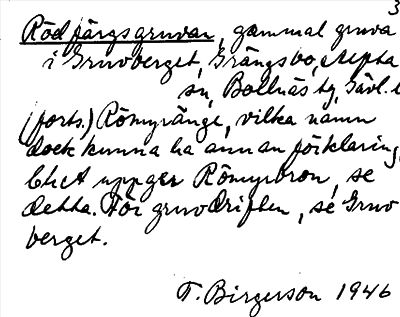 3
Röd färgsgruvan, gammal gruva
i Gruvberget, Grängsbo, Alfta
sn, Bollnäs tg, Gävl. l
(forts.) Römyränge, vilka namn
dock kunna ha annan förklaring.
EkA uppger Römyroron, se
detta. För gruvdriften, se Gruv
berget.
T. Birgerson 1946